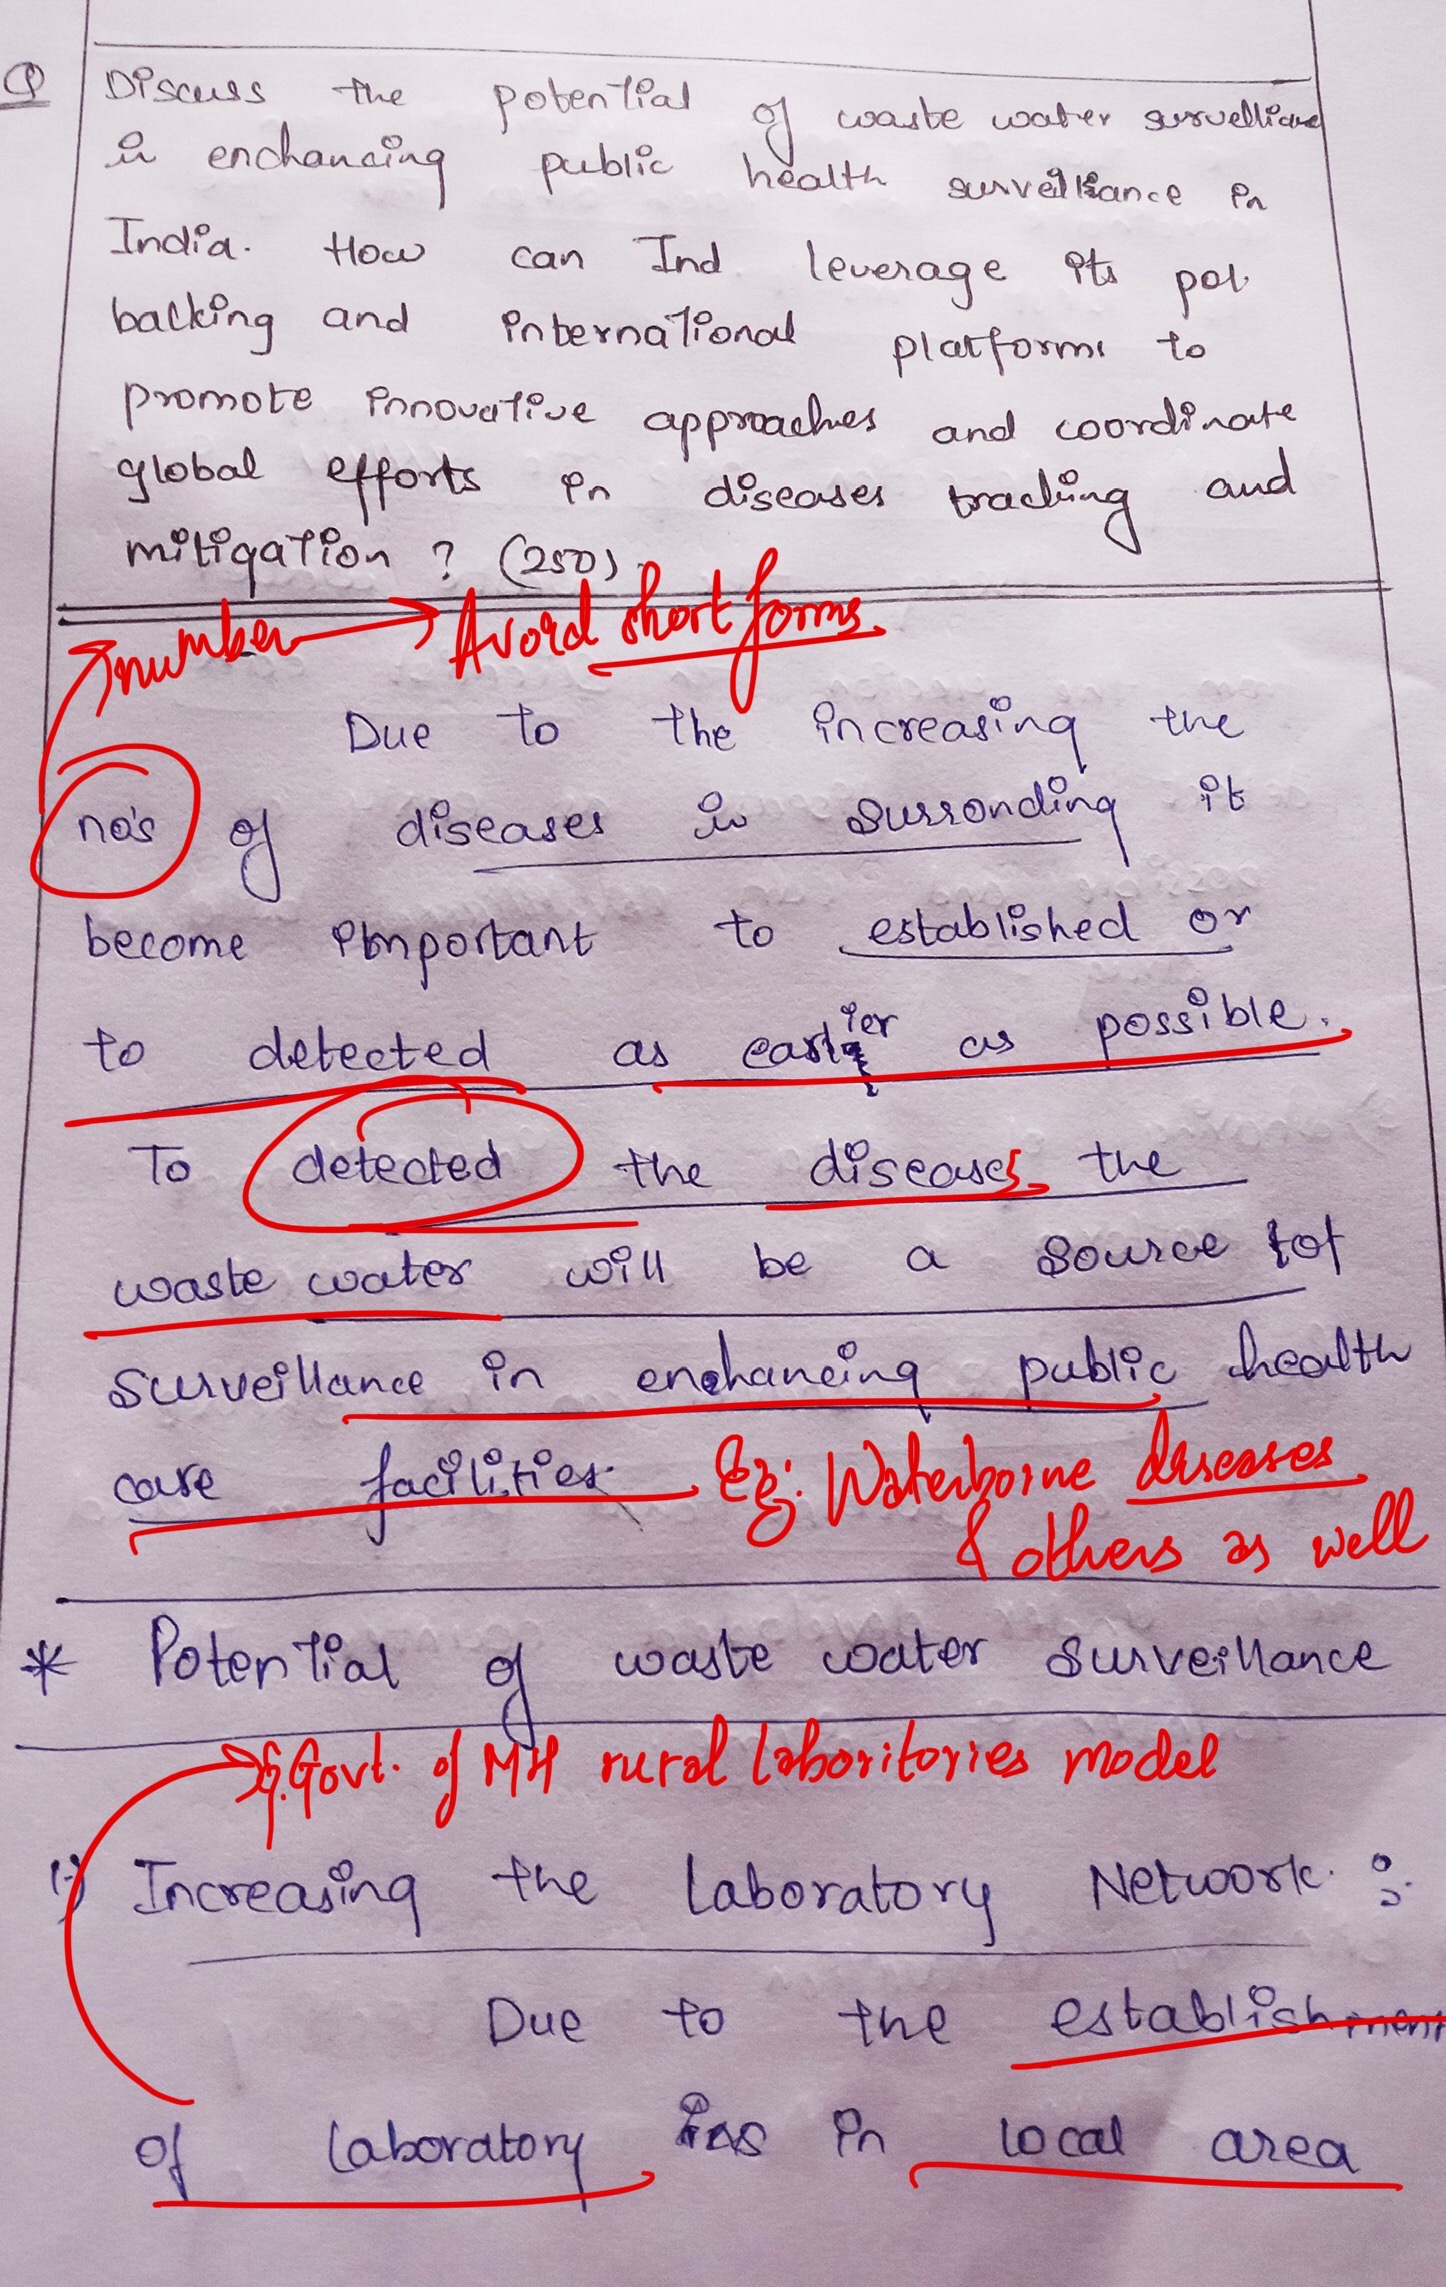 Q Discuss the potential of waste water survelliance
in enchancing public health surveillance in
India. How can Ind leverage its pol.
backing and international platforms to
promote innovative approaches and coordinate
global efforts in diseases tracking and
mitigation ? (250)
number → Avoid short forms.
Due to the increasing the
no's of diseases in surronding it
become important to established or
to detected as earlier as possible.
To detected the diseases, the
waste water will be a source of
surveillance in enchancing public health
care facilities. Eg: Waterborne diseases
& others as well
* Potential of waste water surveillance
Eg. Govt. of MH rural laboritories model
1.) Increasing the Laboratory Network :
Due to the establishment
of laboratory in local area